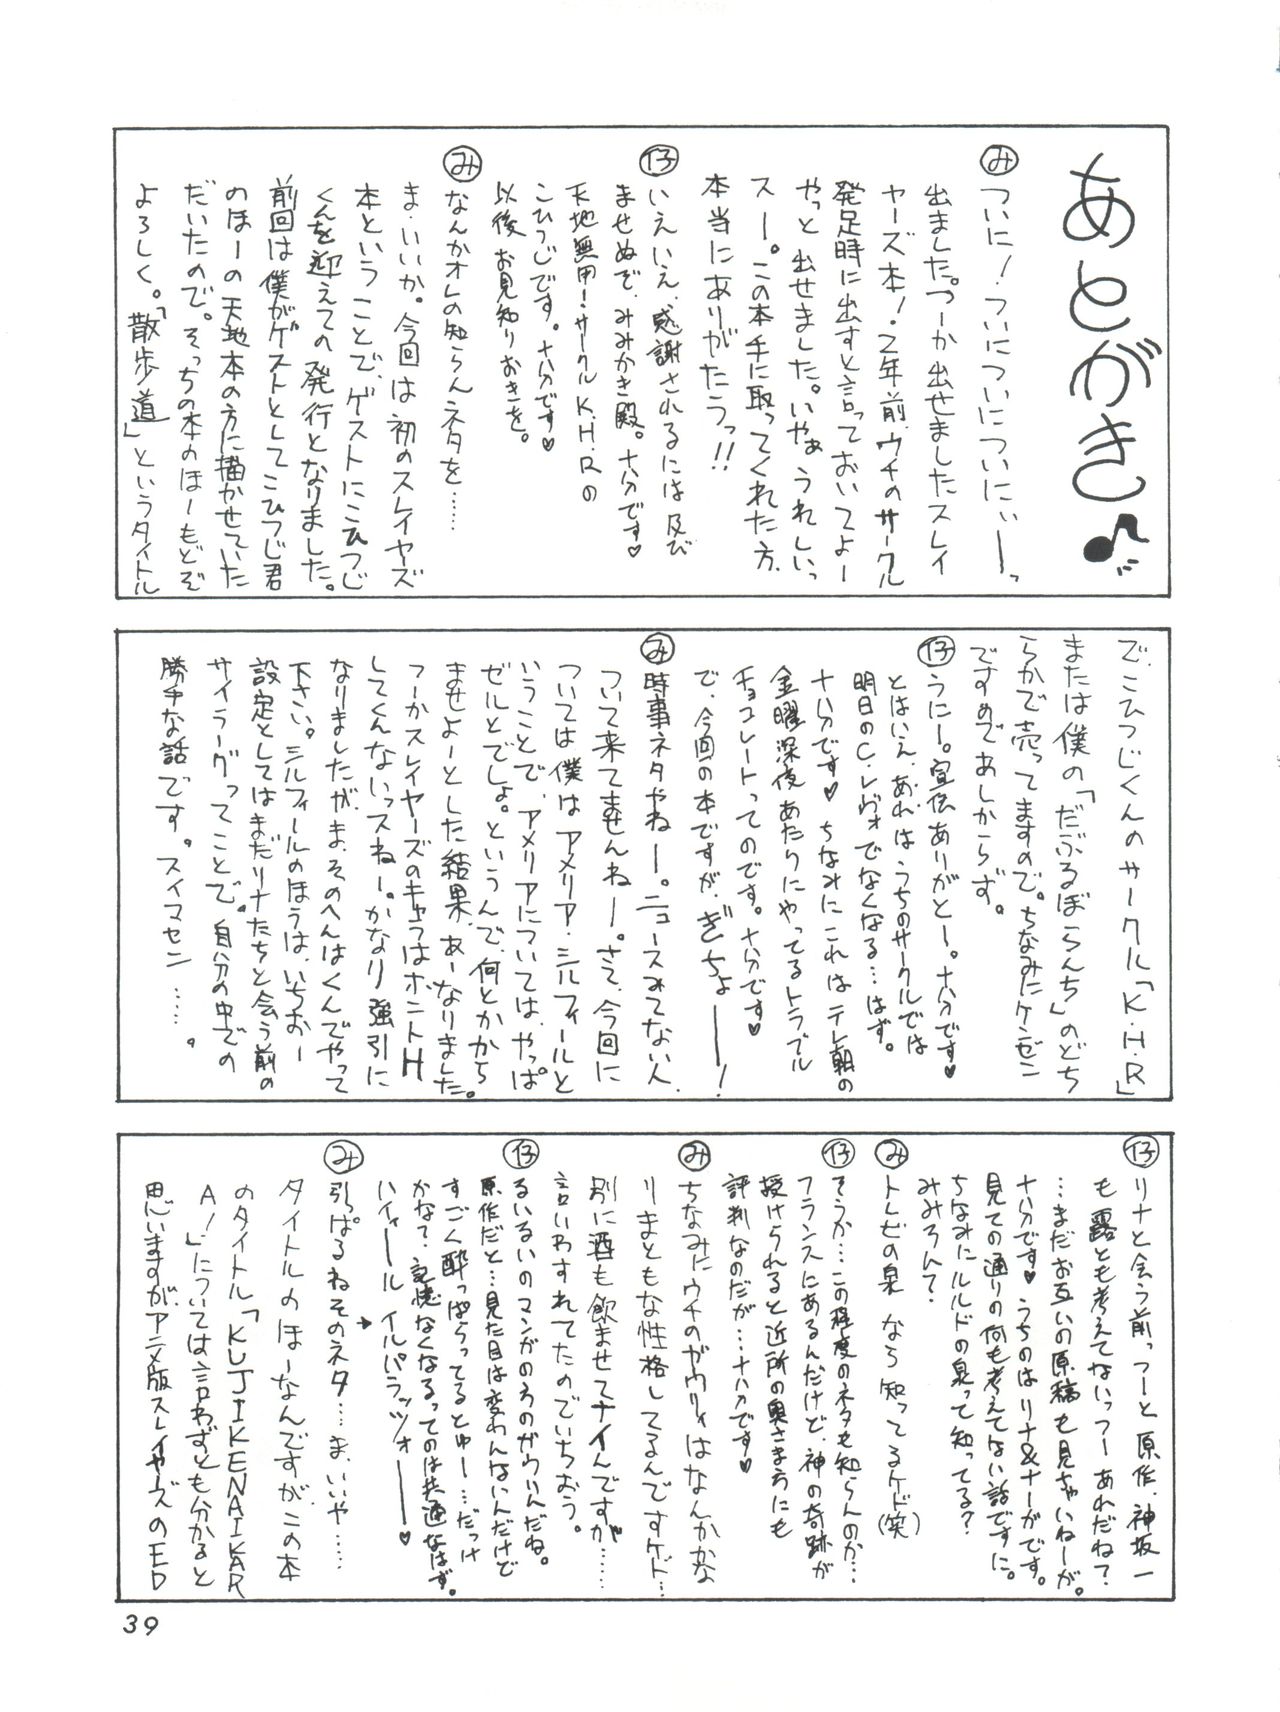 あとがき♪
み ついに!ついについについにぃーっ
出ました。つーか出せましたスレイ
ヤーズ本!・2年前、ウチのサークル
発足時に出すと言っておいてよー
やっと出せました。いやぁうれしいっ
スー。この本手に取ってくれた方、
本当にありがたうっ!!
仔 いえいえ、感謝されるには及び
ませぬぞ、みみかき殿。十分です♥
天地無用!サークルK.H.Rの
こひつじです。十分です♥
以後お見知りおきを。
み なんかオレの知らんネタを……
ま、いいか。今回は初のスレイヤーズ
本ということで、ゲストにこひつじ
くんを迎えての発行となりました。
前回は僕がゲストとしてこひつじ君
のほーの天地本の方に描かせていた
だいたので。そっちの本のほーもどぞ
よろしく。「散歩道」というタイトル
で、こひつじくんのサークル「K.H.R」
または僕の「だぶるぼらんち」のどち
らかで売ってますので。ちなみにケンゼン
ですのであしからず。
仔 うにー。宣伝ありがとー。十分です♥
とはいえ、あれはうちのサークルでは
明日のC.レヴォでなくなる…はず。
十分です♥ ちなみにこれはテレ朝の
金曜深夜あたりにやってるトラブル
チョコレートってのです。十分です♥
で、今回の本ですが、ぎちょ――!
み 時事ネタやねー。ニュースみてない人、
ついて来てませんねー。さて、今回に
ついては僕はアメリア・シルフィールと
いうことで、アメリアについては、やっぱ
ゼルとでしょ。というんで、何とかから
ませよーとした結果、あーなりました。
つーかスレイヤーズのキャラはホントH
してくんないっスねー。かなり強引に
なりましたが、ま、そのへんはくんでやって
下さい。シルフィールのほうは、いちおー
設定としてはまだリナたちと会う前の
サイラーグってことで。自分の中での
勝手な話です。スイマセン……。
仔 リナと会う前っつーと原作、神坂一
も露とも考えてないっつーあれだね?
…まだお互いの原稿も見ちゃいねーが。
十分です♥ うちのはリナ&ナーガです。
見ての通りの何も考えてない話ですに。
ちなみにルルドの泉って知ってる?
みみろん?
み トレビの泉なら知ってるケド(笑)
仔 そうか…この程度のネタも知らんのか…
フランスにあるんだけど、神の奇跡が
授けられると近所の奥さま方にも
評判なのだが…十分です♥
み ちなみにウチのガウリィはなんかかな
りまともな性格してるんですケド…
別に酒も飲ませてナイんですが……
言いわすれてたのでいちおう。
仔 るいるいのマンガのうのガウリんだね。
原作だと…見た目は変わんないんだけど
すごく酔っぱらってるとゆー…だっけ
かな?、記憶なくなるってのは共通なはず。
ハイヤール イルパラッツォ――♥
み 引っぱるねそのネタ…ま、いいや……
タイトルのほーなんですが、この本
のタイトル「KUJIKENAIKAR
A!」については言わずとも分かると
思いますが、アニメ版スレイヤーズのED
39